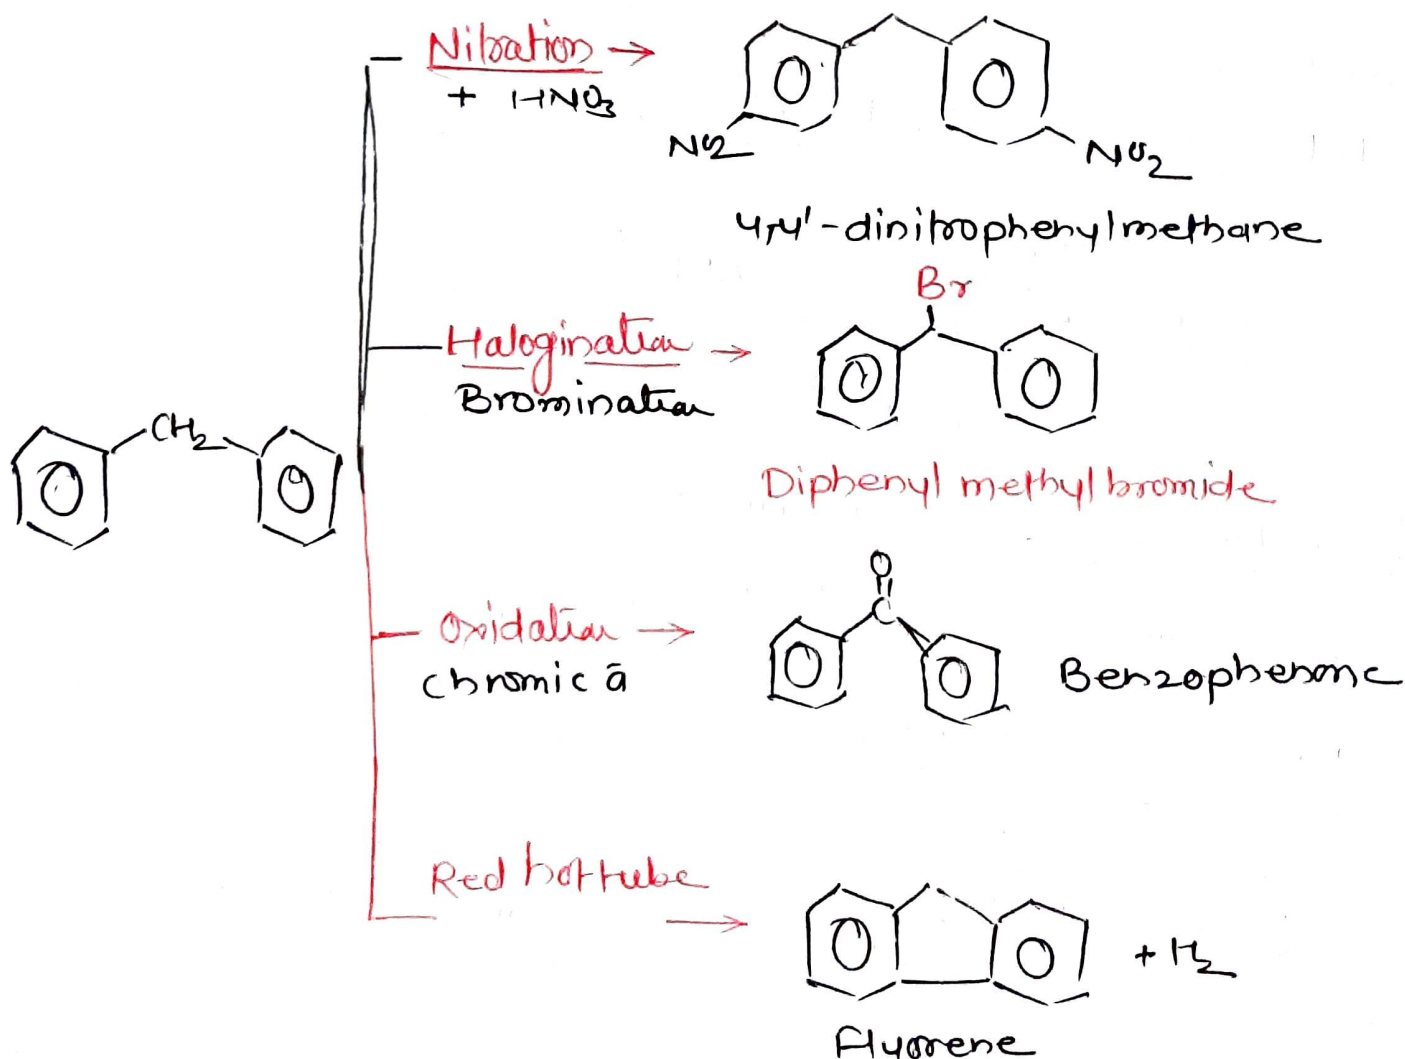 Nitration →
+ HNO3
NO2
NO2
4,4'-dinitrophenylmethane
Br
Halogination →
Bromination
CH2
Diphenyl methyl bromide
O
Oxidation →
C
chromic ā
Benzophenone
Red hot tube
→
+ H2
Fluorene